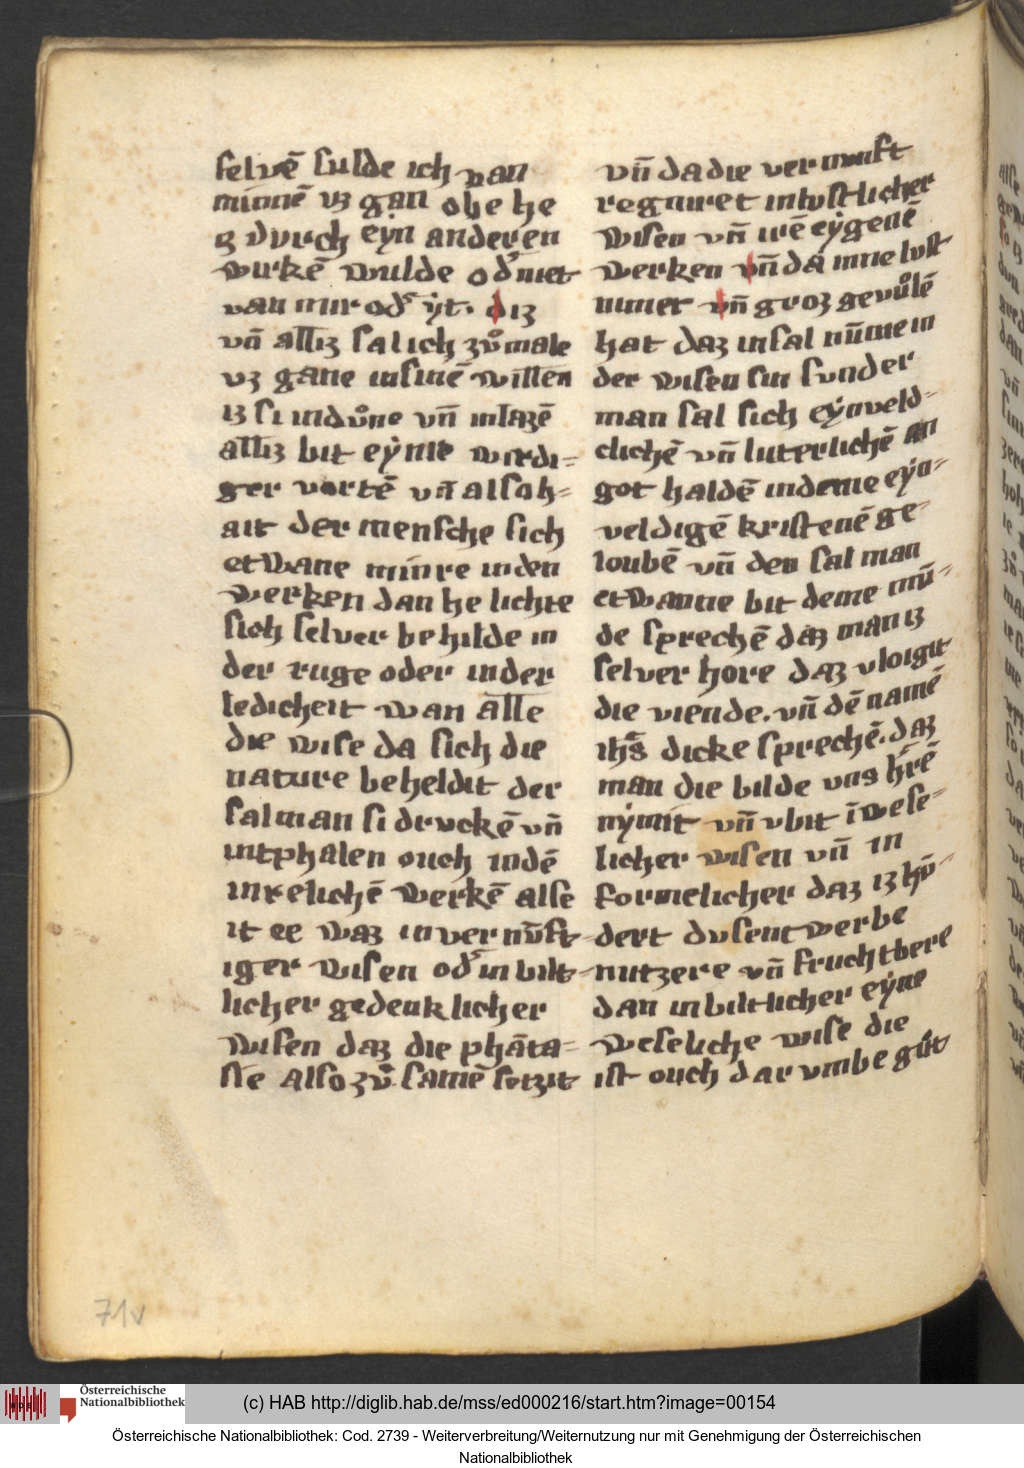 selvē sulde ich van
minnē vz gan obe he
iz durch eyn anderen
wurkē wulde od' niet
van mir od' yt. diz
vn̄ alliz sal ich zůmale
vz gane in sinē willen
iz si in důne vn̄ in lazē
alliz bit eynir wirdi=
ger vortē vn̄ also h=
ait der mensche sich
etwane minre in den
werken dan he lichte
sich selver behilde in
der ruge oder in der
ledicheit wan alle
die wise da sich die
nature beheldit der
sal man si druckē vn̄
intphalen ouch in dē
inrelichē werkē alse
it ee waz in vernūft=
iger wisen od' in bilt=
licher gedenklicher
wisen daz die phāta=
sie also zů samē setzit
vn̄ da die vernunft
regniret in lustlicher
wisen vn̄ irē eygenē
werken vn̄ da inne lust
nimet vn̄ groz gevůlē
hat daz in sal nūme in
der wisen sin sunder
man sal sich eynveld-
clichē vn̄ luterlichē an
got haldē in deme eyn=
veldigē kristenē ge-
loubē vn̄ den sal man
etwanne bit deme mū-
de sprechē daz man iz
selver hore daz vloigit
die viende. vn̄ dē namē
ihs̄ dicke sprechē. daz
man die bilde vns hrē
nymit vn̄ vbit ī wese=
licher wisen vn̄ in
formelicher daz iz hū-
dert dusent werbe
nutzere vn̄ fruchtbere
dan in biltlicher eyne
weseliche wise die
ist ouch dar vmbe gůt
71v
Österreichische
Nationalbibliothek
(c) HAB http://diglib.hab.de/mss/ed000216/start.htm?image=00154
Österreichische Nationalbibliothek: Cod. 2739 - Weiterverbreitung/Weiternutzung nur mit Genehmigung der Österreichischen
Nationalbibliothek